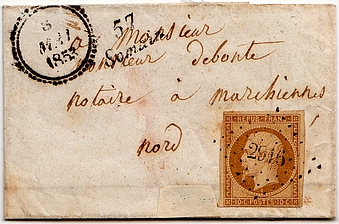 5
MAI
185
57
Somain
a Monsieur
Monsieur debonte
notaire à marchiennes
nord
REPUB FRANC
2916
10·C POSTES 10·C